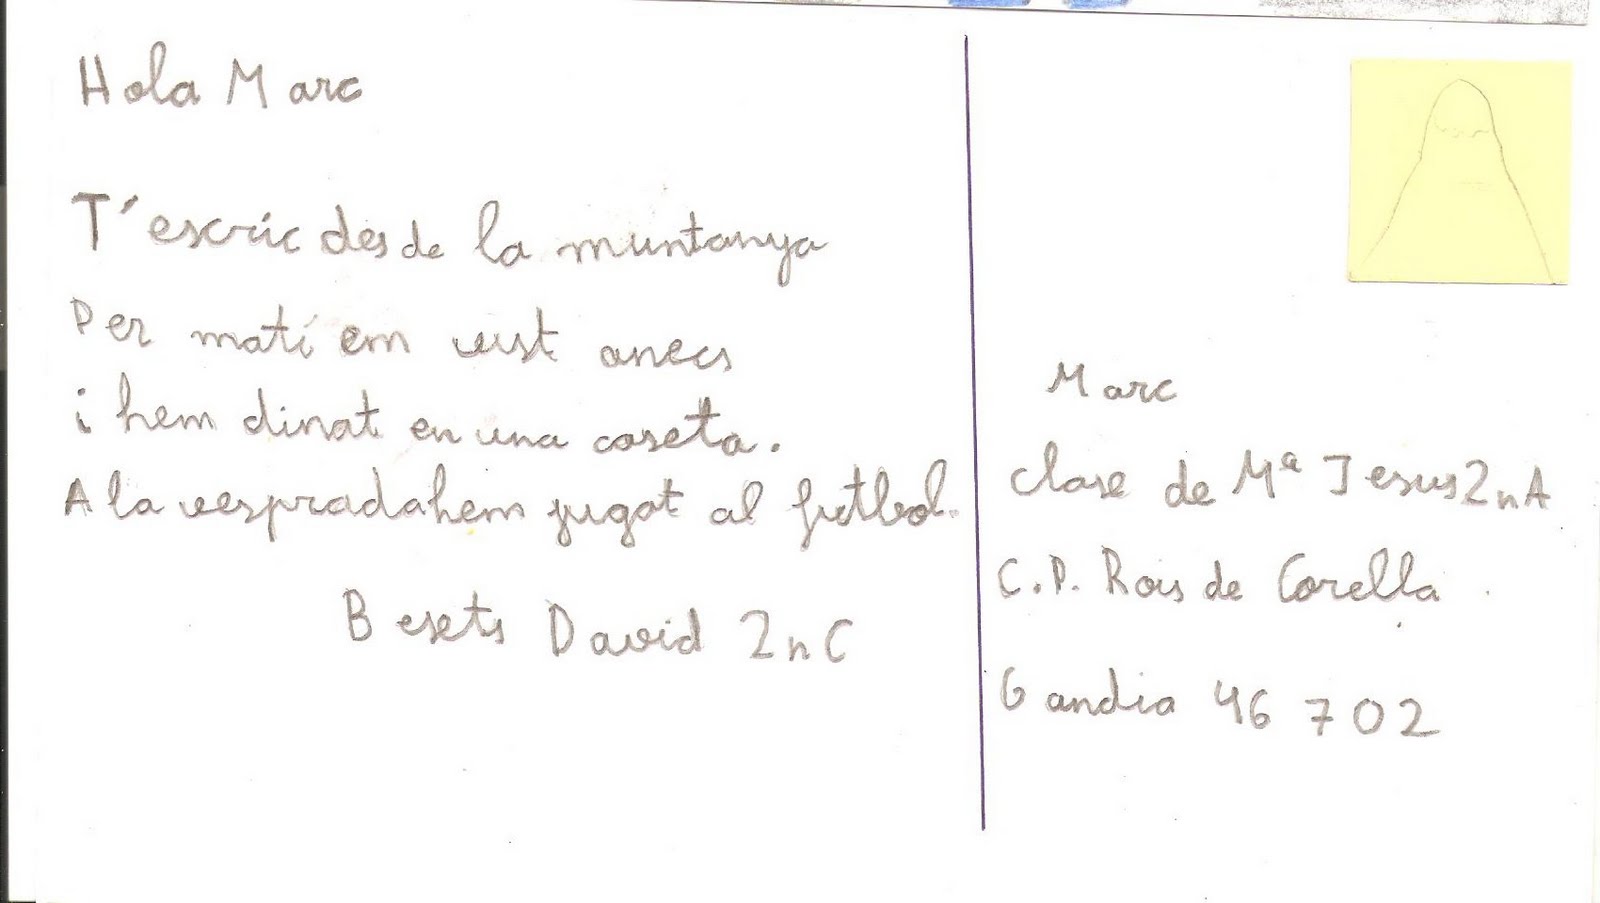 Hola Marc
T'escric des de la muntanya
Per matí em vist anecs
i hem dinat en una caseta.
A la vespradahem jugat al futbol.
Besets David 2nC
Marc
clase de Mª Jesus 2nA
C.P. Rois de Corella
Gandia 46702